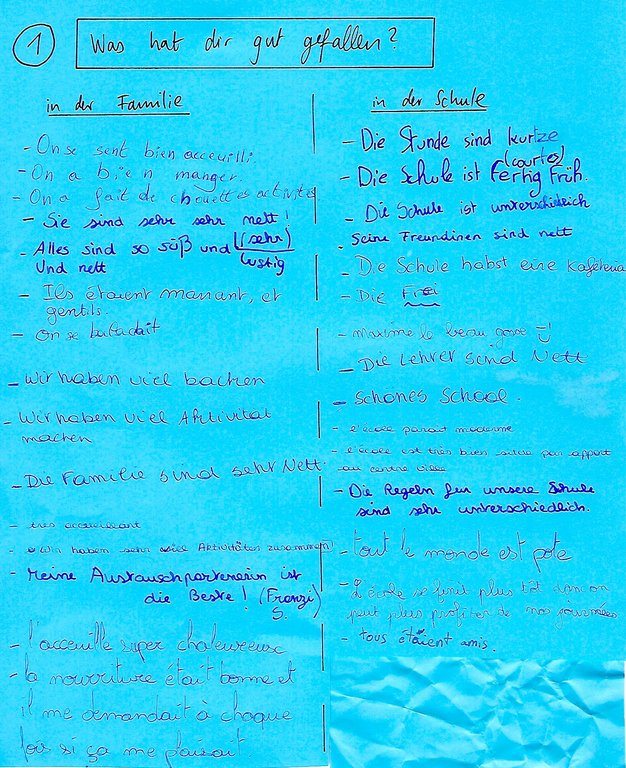 1 Was hat dir gut gefallen?
in der Familie
- On se sent bien acceuilli.
- On a bien manger.
- On a fait de chouettes activités
- Sie sind sehr sehr nett!
- Alles sind so süß und (sehr) lustig
Und nett
- Ils étaient marrant, et
gentils.
- On se baladait
- Wir haben viel backen
- Wir haben viel Aktivität
machen
- Die Familie sind sehr Nett.
- très accueillant
- Wir haben sehr viel Aktivitäten zusammen
- Meine Austauschpartenerin ist
die Beste! (Franzi S.)
- l'acceuille super chaleureux
- la nourriture était bonne et
il me demandait à chaque
fois si ça me plaisait.
in der Schule
- Die Stunde sind kurtze
(courtes)
- Die Schule ist fertig früh.
- Die Schule ist unterschieleich
. Seine Freundinen sind nett
- Die Schule habst eine Kafeteria
- Die Frei
- maxime le beau gosse
- Die Lehrer sind Nett
- Schönes School.
- l'école parait moderne
- l'école est très bien située par apport
au centre ville
- Die Regeln für unsere Schule
sind sehr unterschiedlich.
- tout le monde est pote
- L'école se finit plus tôt donc on
peut plus profiter de nos journées
- tous étaient amis.